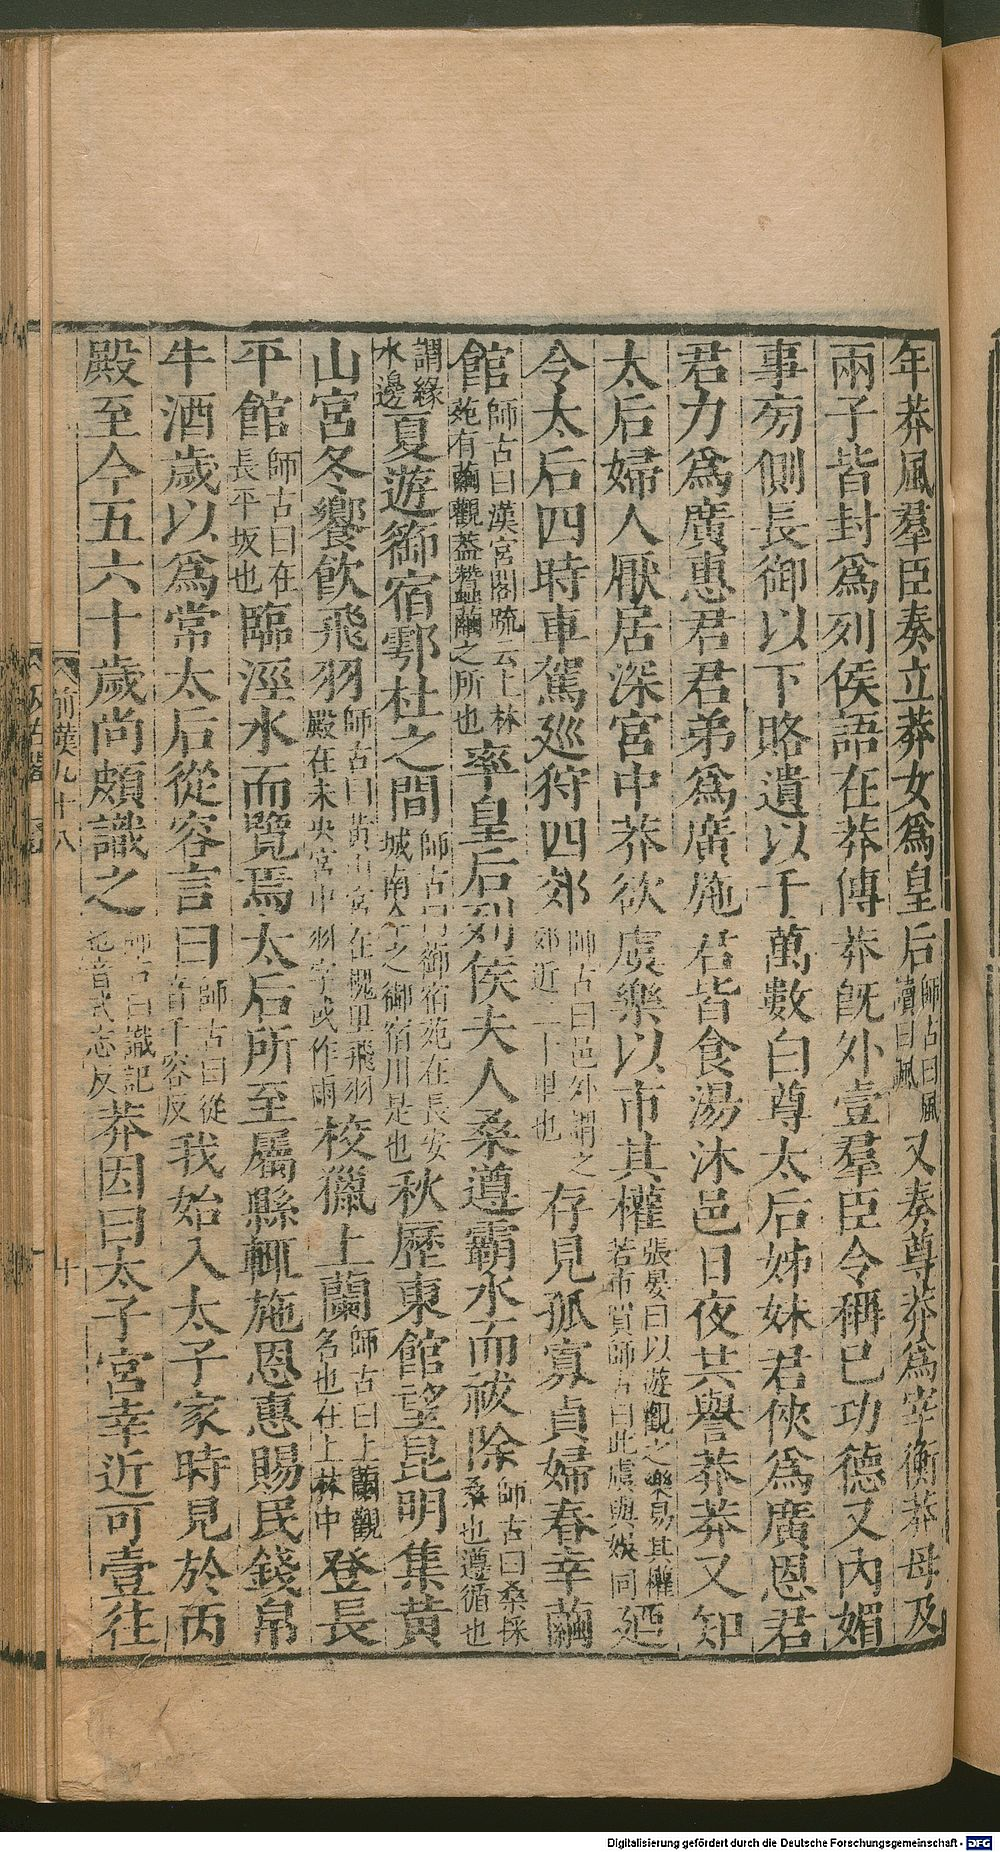 年莽風羣臣奏立莽女爲皇后師古曰風讀曰諷又奏尊莽爲宰衡莽母及
兩子皆封爲列侯語在莽傳莽旣外壹羣臣令稱已功德又內媚
事旁側長御以下賂遺以千萬數白尊太后姊妹君俠爲廣恩君
君力爲廣惠君君弟爲廣施君皆食湯沐邑日夜共譽莽莽又知
太后婦人厭居深宮中莽欲虞樂以市其權張晏曰以遊觀之樂易其權若市買師古曰此虞與娛同廼
令太后四時車駕廵狩四郊師古曰邑外謂之郊近二十里也存見孤寡貞婦春幸繭
館師古曰漢宮閣疏云上林苑有繭觀蓋蠶繭之所也率皇后列侯夫人桑遵霸水而祓除師古曰桑採桑也遵循也
謂緣水邊夏遊御宿鄠杜之間師古曰御宿苑在長安城南今之御宿川是也秋歷東館望昆明集黃
山宮冬饗飮飛羽師古曰黃山宮在槐里飛羽殿在未央宮中羽字或作雨校獵上蘭師古曰上蘭觀名也在上林中登長
平館師古曰在長平坂也臨涇水而覽焉太后所至屬縣輒施恩惠賜民錢帛
牛酒歲以爲常太后從容言曰師古曰從音千容反我始入太子家時見於丙
殿至今五六十歲尚頗識之師古曰識記也音式志反莽因曰太子宮幸近可壹往
前漢九十八
十
Digitalisierung gefördert durch die Deutsche Forschungsgemeinschaft - DFG